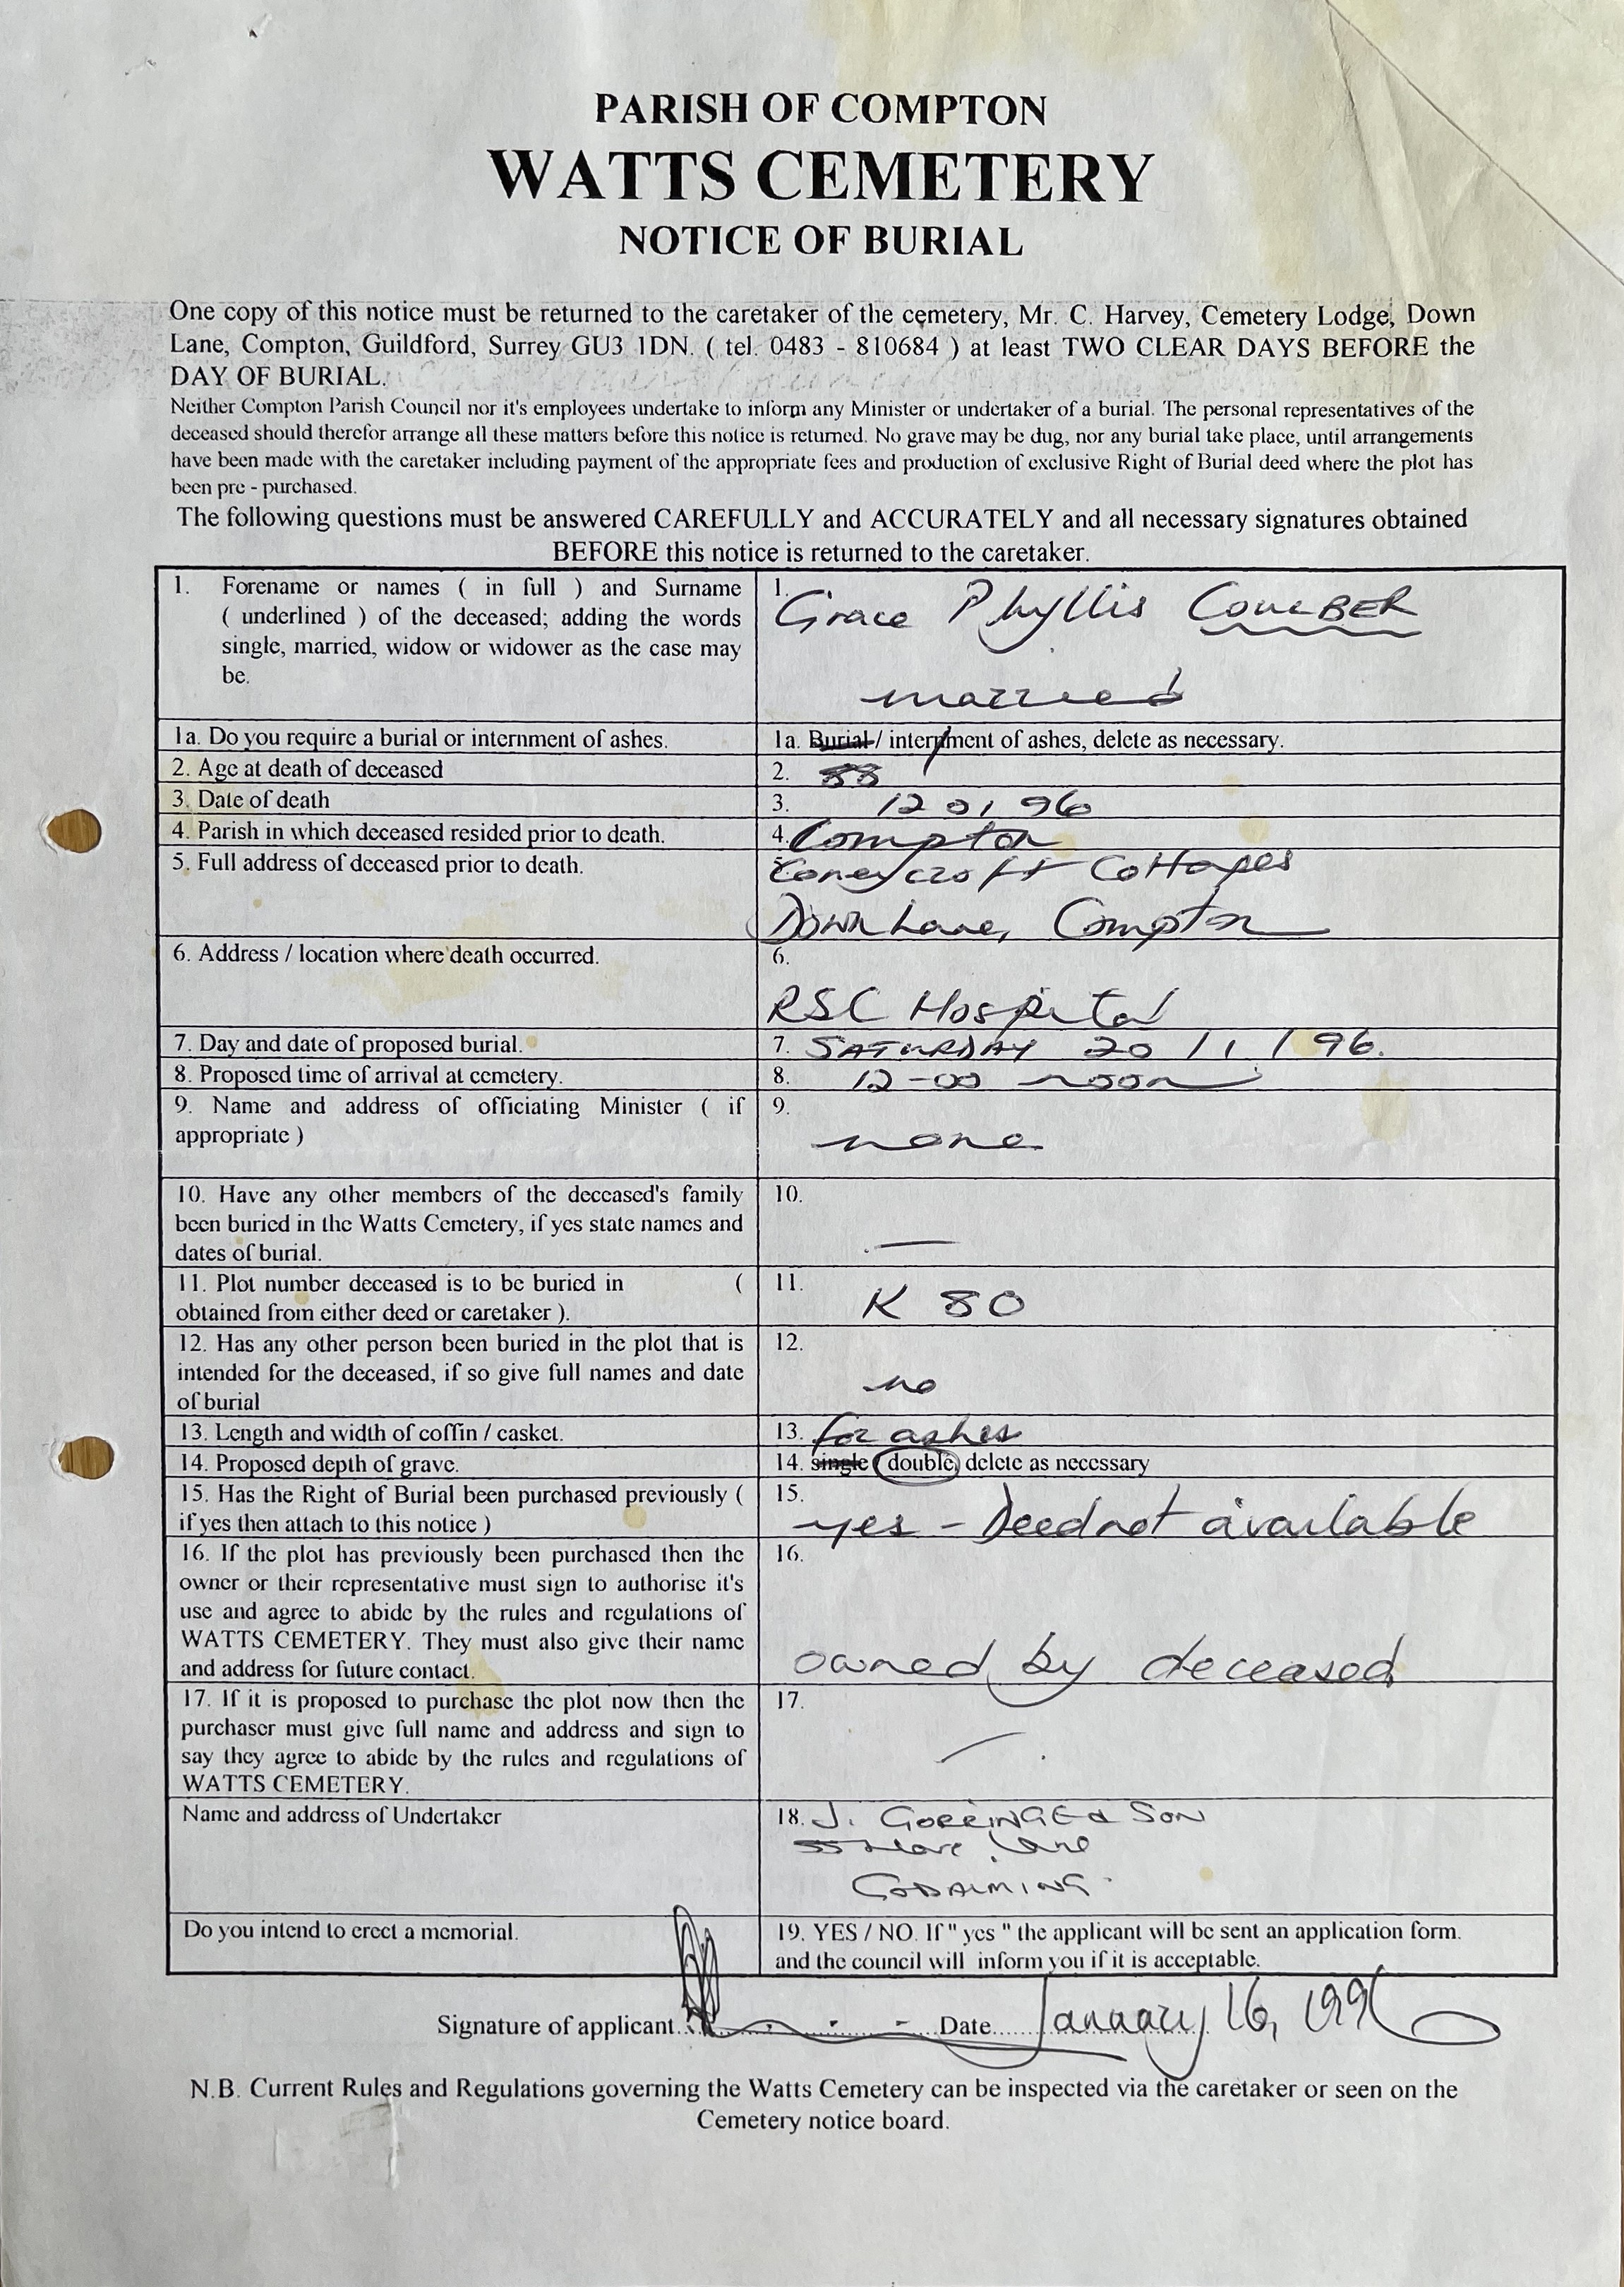 PARISH OF COMPTON
WATTS CEMETERY
NOTICE OF BURIAL
One copy of this notice must be returned to the caretaker of the cemetery, Mr. C. Harvey, Cemetery Lodge, Down
Lane, Compton, Guildford, Surrey GU3 1DN. ( tel. 0483 - 810684 ) at least TWO CLEAR DAYS BEFORE the
DAY OF BURIAL.
Neither Compton Parish Council nor it's employees undertake to inform any Minister or undertaker of a burial. The personal representatives of the
deceased should therefor arrange all these matters before this notice is returned. No grave may be dug, nor any burial take place, until arrangements
have been made with the caretaker including payment of the appropriate fees and production of exclusive Right of Burial deed where the plot has
been pre - purchased.
The following questions must be answered CAREFULLY and ACCURATELY and all necessary signatures obtained
BEFORE this notice is returned to the caretaker.
1. Forename or names ( in full ) and Surname
( underlined ) of the deceased; adding the words
single, married, widow or widower as the case may
be.
1.
Grace Phyllis ComBER
married
1a. Do you require a burial or internment of ashes.
1a. Burial / internment of ashes, delete as necessary.
2. Age at death of deceased
2. 88
3. Date of death
3. 12 01 96
4. Parish in which deceased resided prior to death.
4. Compton
5. Full address of deceased prior to death.
5. Coneycroft Cottages
Down Lane, Compton
6. Address / location where death occurred.
6.
RSC Hospital
7. Day and date of proposed burial.
7. SATURDAY 20 / 1 / 96.
8. Proposed time of arrival at cemetery.
8. 12-00 noon
9. Name and address of officiating Minister ( if
appropriate )
9.
none
10. Have any other members of the deceased's family
been buried in the Watts Cemetery, if yes state names and
dates of burial.
10.
—
11. Plot number deceased is to be buried in (
obtained from either deed or caretaker ).
11.
K 80
12. Has any other person been buried in the plot that is
intended for the deceased, if so give full names and date
of burial
12.
no
13. Length and width of coffin / casket.
13. for ashes
14. Proposed depth of grave.
14. single double, delete as necessary
15. Has the Right of Burial been purchased previously (
if yes then attach to this notice )
15.
yes - Deed not available
16. If the plot has previously been purchased then the
owner or their representative must sign to authorise it's
use and agree to abide by the rules and regulations of
WATTS CEMETERY. They must also give their name
and address for future contact.
16.
owned by deceased
17. If it is proposed to purchase the plot now then the
purchaser must give full name and address and sign to
say they agree to abide by the rules and regulations of
WATTS CEMETERY.
17.
—
Name and address of Undertaker
18. J. GORRINGE & SON
Lane
GODALMING
Do you intend to erect a memorial.
19. YES / NO. If " yes " the applicant will be sent an application form.
and the council will inform you if it is acceptable.
Signature of applicant Date January 16, 1996
N.B. Current Rules and Regulations governing the Watts Cemetery can be inspected via the caretaker or seen on the
Cemetery notice board.